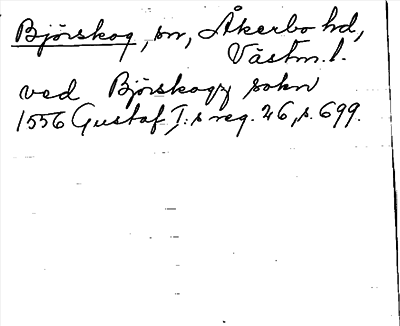 Björskog, sn, Åkerbo hd,
Västm. l.
ved Björskogz sokn
1556 Gustaf I:s reg. 26, s. 699.